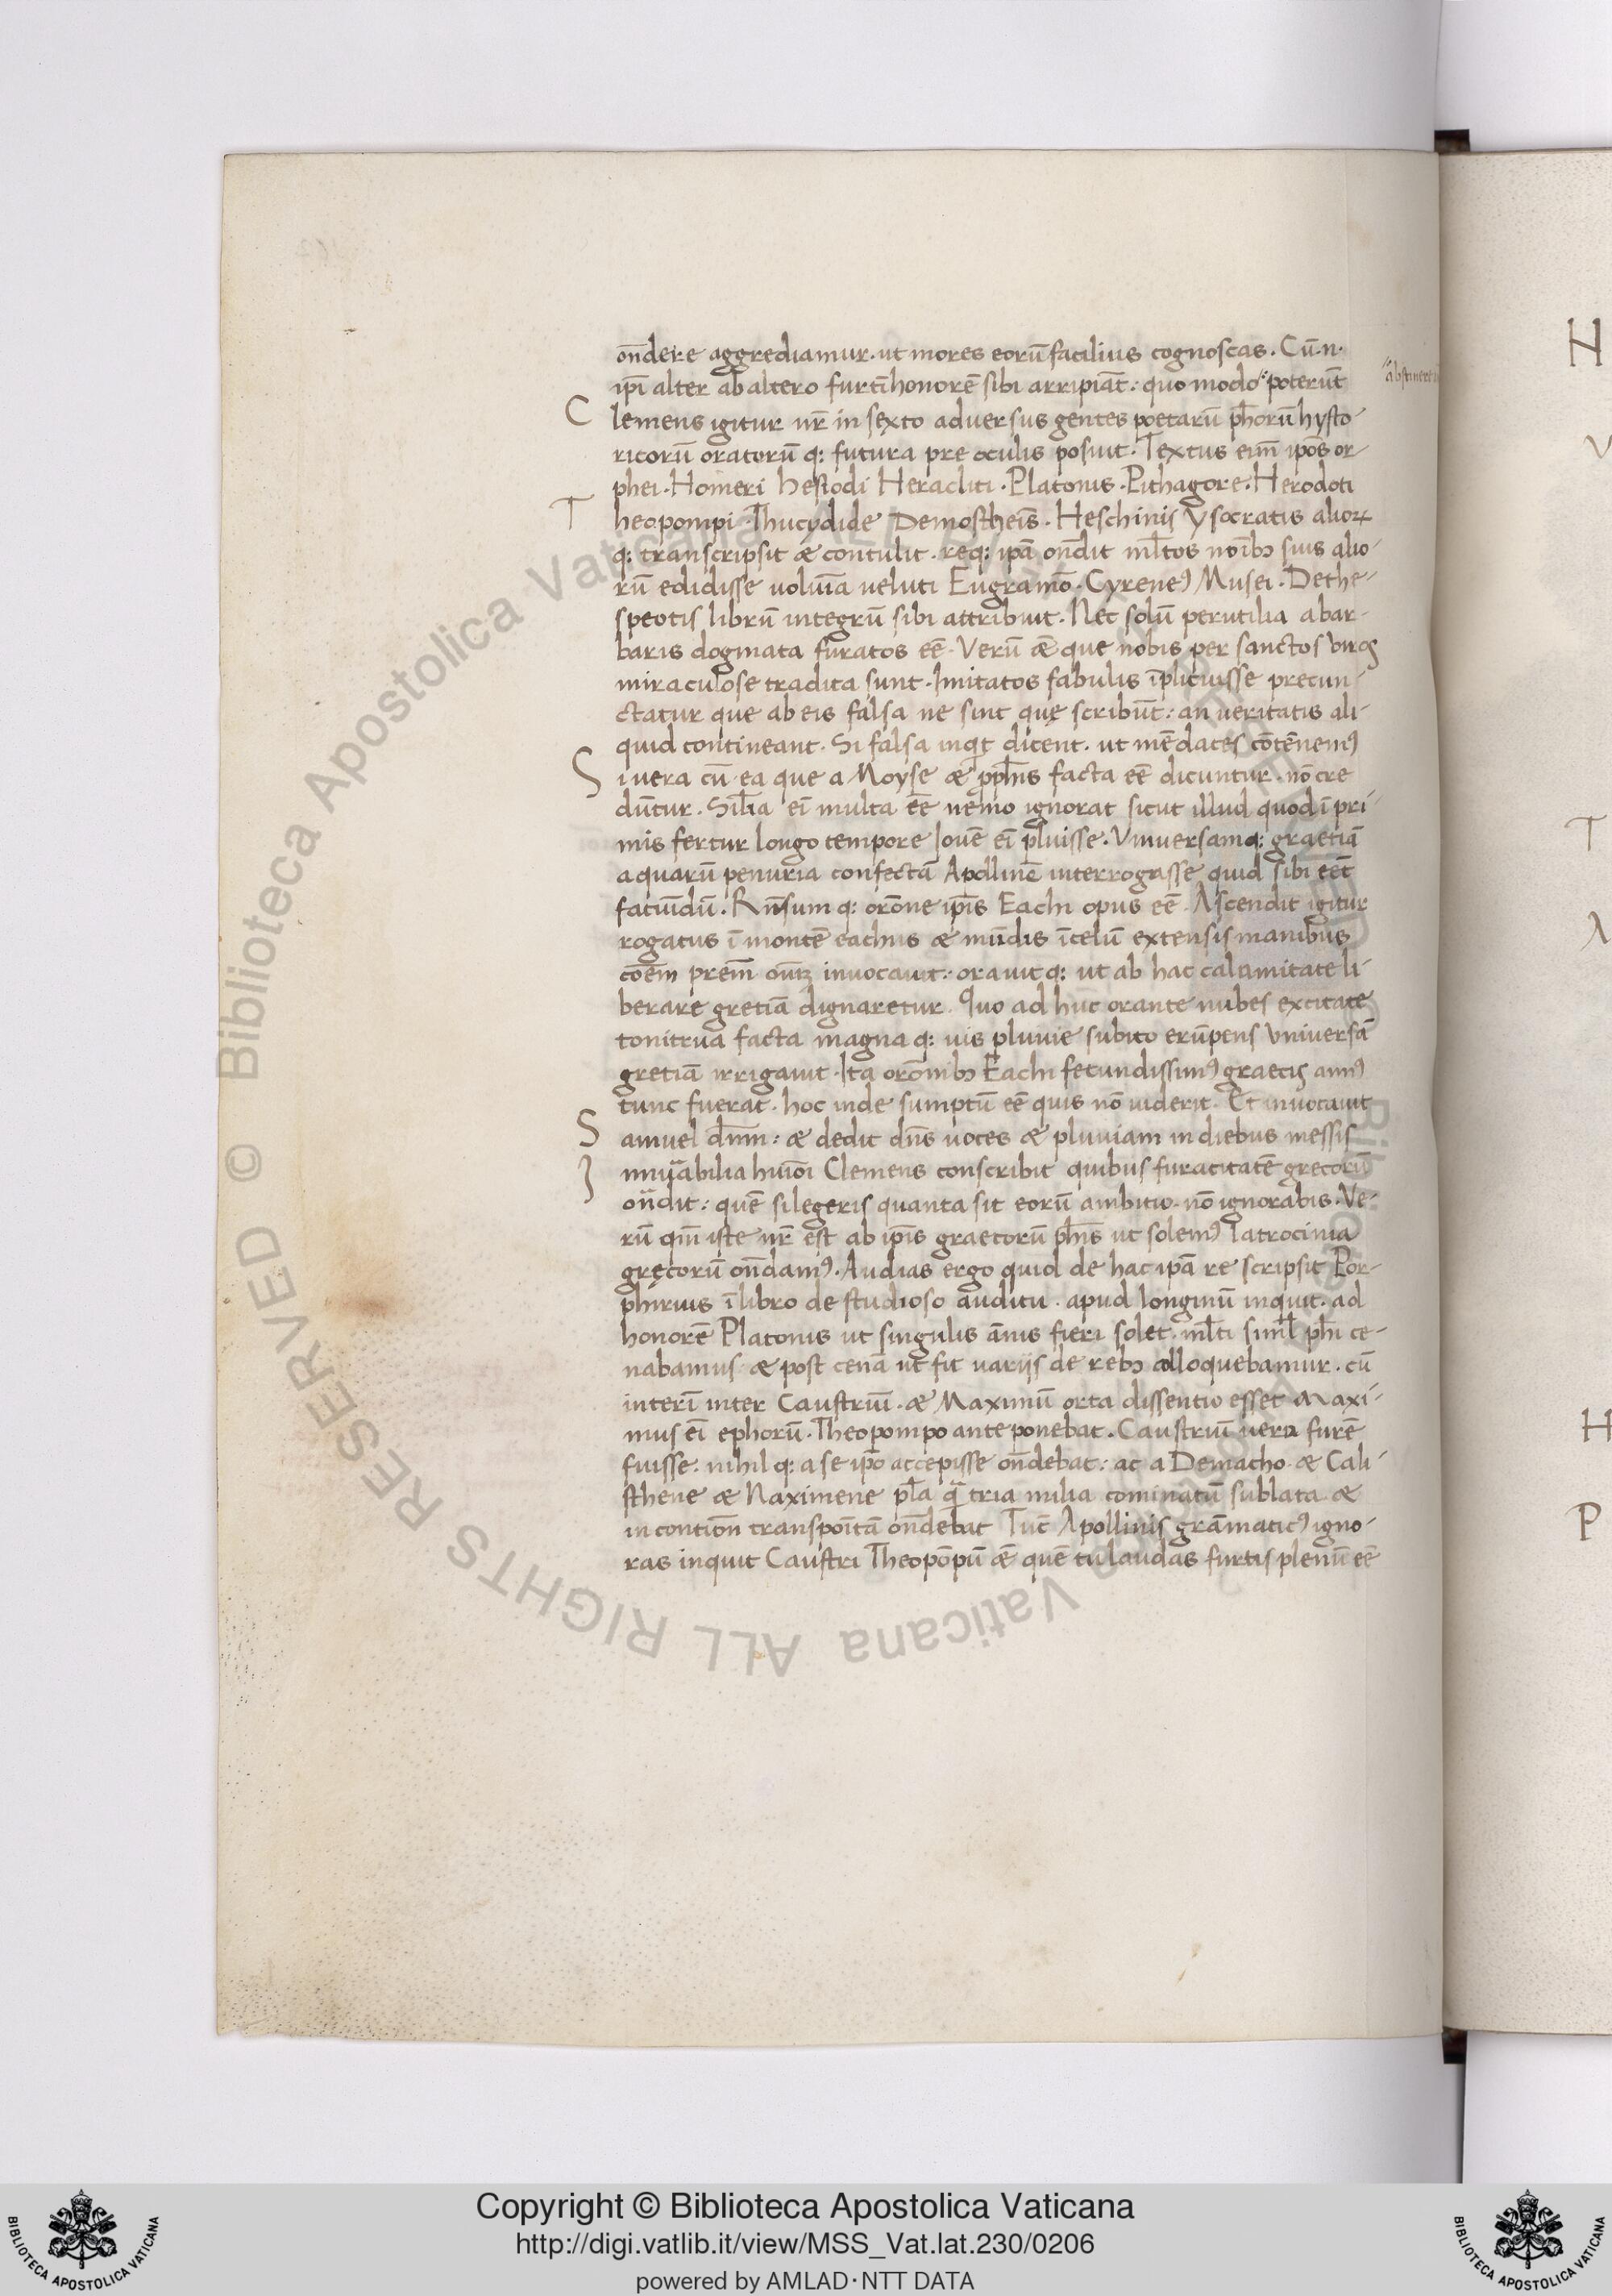 on̄dere aggrediamur. ut mores eorū facilius cognoscas. Cū .n.
ip̄i alter ab altero furtī honorē sibi arripiāt: quo modo poterūt
abstinere
Clemens igitur nr̄ in sexto adversus gentes poetarū ph̄orū hysto-
ricorū oratorū q: futura pre oculis posuit. Textus eīm ipōs or-
phei. Homeri hesiodi Heracliti. Platonis. Pithagore. Herodoti
Theopompi. Thucydide Demostheīs. Heschinis Ysocratis alioꝝ
q: transcripsit & contulit. req: ip̄ā on̄dit ml̄tos noībꝫ suis alio-
rū edidisse voluīa veluti Eugramō. Cyreneꝰ Musei. De the-
speotis librū integrū sibi attribuit. Nec solū perutilia a bar-
baris dogmata furatos eē. Verū & que nobis per sanctos viros
miraculose tradita sunt. Imitatos fabulis īplicuisse precun-
ctatur que ab eis falsa ne sint quę scribūt: an veritatis ali-
quid contineant. Si falsa inqt dicent. ut mēdaces cōtēnemꝰ
Si vera cū ea que a Moyse & pph̄is facta eē dicuntur. nō cre
dūtur. Sil̄ia eī multa eē nemo ignorat sicut illud quod ī pri-
mis fertur longo tempore Iovē eī pluisse. Universamq: graetiā
aquarū penuria confectā Apollinē interrogasse quid sibi eēt
faciūdū. Rn̄sum q: orōne ip̄is Eachi opus eē. Ascendit igitur
rogatus ī montē eachus & mūdis ī celū extensis manibus
cōem prem̄ oīuꝫ invocavit. oravit q: ut ab hac calamitate li-
berare gretiā dignaretur. Quo ad hūc orante nubes excitate
tonitrua facta magna q: vis pluvie subito erūpens universā
gretiā irrigavit. Ita orōnibꝫ Eachi fecundissimꝰ graecis annꝰ
tunc fuerat. hoc inde sumptū eē quis nō viderit. Et invocavit
Samuel dn̄m: & dedit dn̄s voces & pluviam in diebus messis
Inniūabilia huiōi Clemens conscribit quibus furacitatē grecorū
on̄dit: quē si legeris quanta sit eorū ambitio. nō ignorabis. Ve-
rū qm̄ iste nr̄ est ab ip̄is graecorū ph̄is ut solemꝰ latrocinia
gręcorū on̄damꝰ. Audias ergo quid de hac ip̄ā re scripsit Por-
phirius ī libro de studioso auditu. apud longinū inquit. ad
honorē Platonis ut singulis ānis fieri solet. ml̄ti siml̄ ph̄i ce-
nabamus & post cenā ut fit variis de rebꝫ alloquebamur. cū
interī inter Caustriū. & Maximū orta dissentio esset Maxi-
mus eī ephorū. Theopompo ante ponebat. Caustriū vero furē
fuisse. nihil q: a se ip̄o accepisse on̄debat: ac a Demacho & Cali-
sthene & Naximene pl̄a q̄ tria milia cominatū sublata &
in contion̄ transpoītā on̄debat Tuc̄ Apollinis grāmaticꝰ igno-
ras inquit Caustri Theopōpū & quē tu laudas furtis plenū eē
H
V
T
A
H
P
Copyright © Biblioteca Apostolica Vaticana
http://digi.vatlib.it/view/MSS_Vat.lat.230/0206
powered by AMLAD·NTT DATA
BIBLIOTECA APOSTOLICA VATICANA
BIBLIOTECA APOSTOLICA VATICANA
© Biblioteca Apostolica Vaticana ALL RIGHTS RESERVED